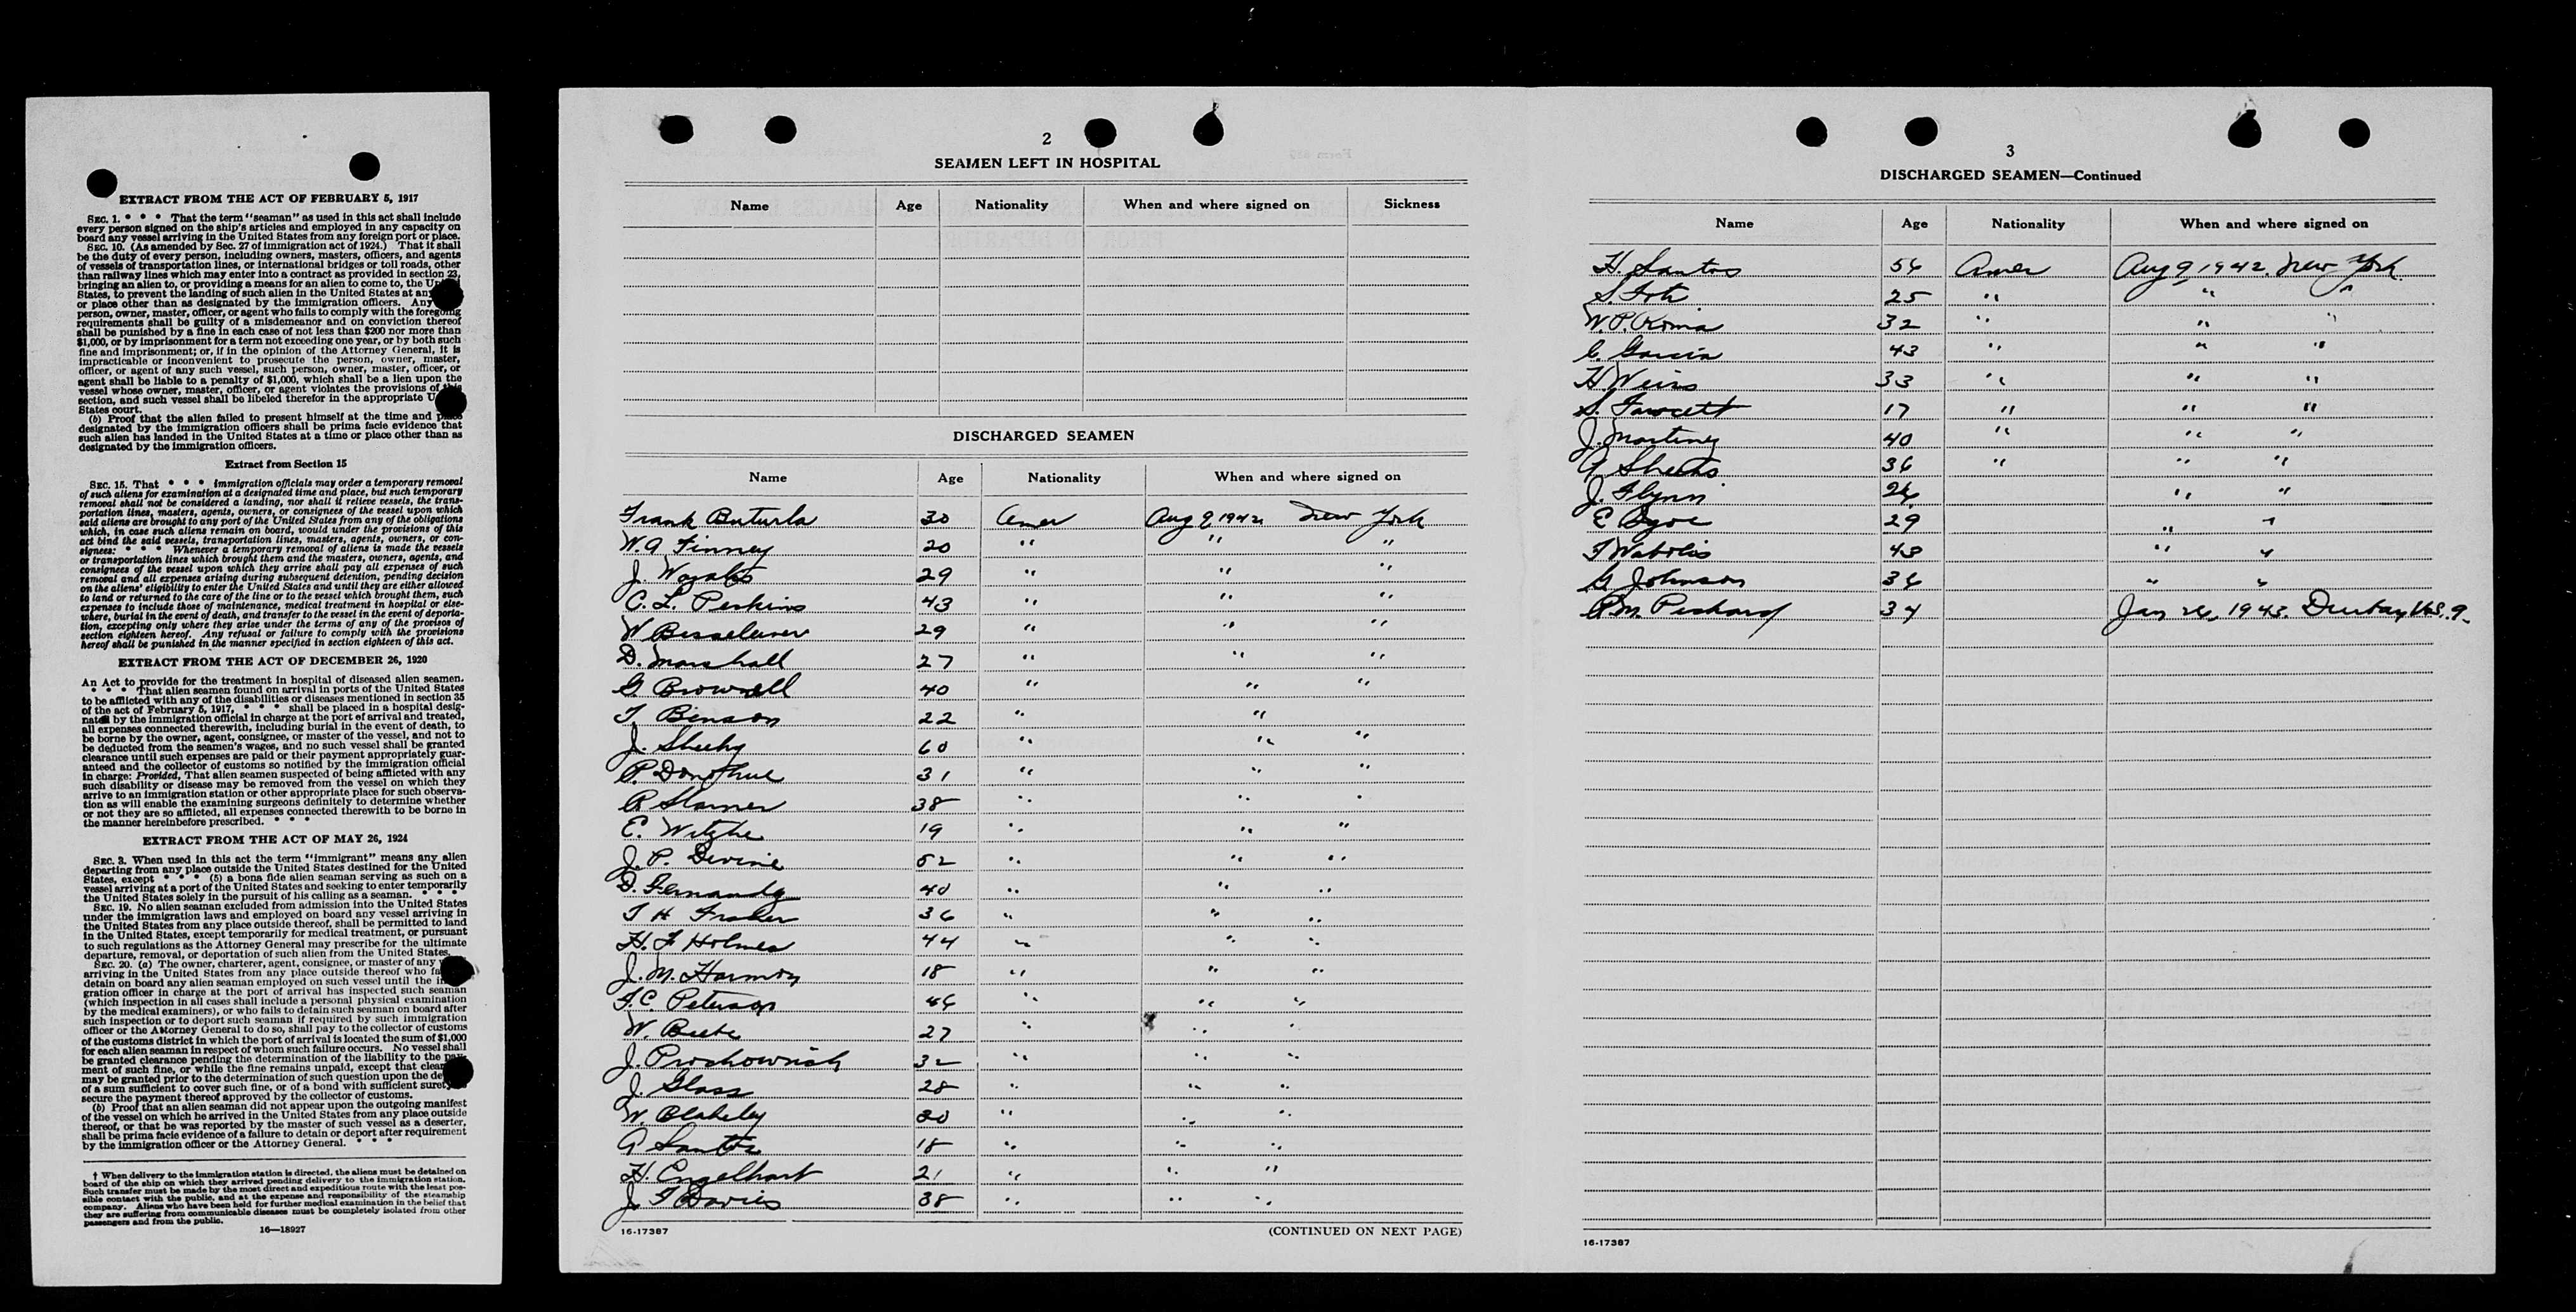 EXTRACT FROM THE ACT OF FEBRUARY 5, 1917
SEC. 1. * * * That the term "seaman" as used in this act shall include
every person signed on the ship's articles and employed in any capacity on
board any vessel arriving in the United States from any foreign port or place.
SEC. 10. (As amended by Sec. 27 of immigration act of 1924.) That it shall
be the duty of every person, including owners, masters, officers, and agents
of vessels of transportation lines, or international bridges or toll roads, other
than railway lines which may enter into a contract as provided in section 23,
bringing an alien to, or providing a means for an alien to come to, the
States, to prevent the landing of such alien in the United States at any
or place other than as designated by the immigration officers. Any
person, owner, master, officer, or agent who fails to comply with the foregoing
requirements shall be guilty of a misdemeanor and on conviction thereof
shall be punished by a fine in each case of not less than $200 nor more than
$1,000, or by imprisonment for a term not exceeding one year, or by both such
fine and imprisonment; or, if in the opinion of the Attorney General, it is
impracticable or inconvenient to prosecute the person, owner, master,
officer, or agent of any such vessel, such person, owner, master, officer, or
agent shall be liable to a penalty of $1,000, which shall be a lien upon the
vessel whose owner, master, officer, or agent violates the provisions of this
section, and such vessel shall be libeled therefor in the appropriate
States court.
(b) Proof that the alien failed to present himself at the time and place
designated by the immigration officers shall be prima facie evidence that
such alien has landed in the United States at a time or place other than as
designated by the immigration officers.
Extract from Section 15
SEC. 15. That * * * immigration officials may order a temporary removal
of such aliens for examination at a designated time and place, but such temporary
removal shall not be considered a landing, nor shall it relieve vessels, the trans-
portation lines, masters, agents, owners, or consignees of the vessel upon which
said aliens are brought to any port of the United States from any of the obligations
which, in case such aliens remain on board, would under the provisions of this
act bind the said vessels, transportation lines, masters, agents, owners, or con-
signees: * * * Whenever a temporary removal of aliens is made the vessels
or transportation lines which brought them and the masters, owners, agents, and
consignees of the vessel upon which they arrive shall pay all expenses of such
removal and all expenses arising during subsequent detention, pending decision
on the aliens' eligibility to enter the United States and until they are either allowed
to land or returned to the care of the line or to the vessel which brought them, such
expenses to include those of maintenance, medical treatment in hospital or else-
where, burial in the event of death, and transfer to the vessel in the event of deporta-
tion, excepting only where they arise under the terms of any of the provisos of
section eighteen hereof. Any refusal or failure to comply with the provisions
hereof shall be punished in the manner specified in section eighteen of this act.
EXTRACT FROM THE ACT OF DECEMBER 26, 1920
An Act to provide for the treatment in hospital of diseased alien seamen.
* * * That alien seamen found on arrival in ports of the United States
to be afflicted with any of the disabilities or diseases mentioned in section 35
of the act of February 5, 1917, * * * shall be placed in a hospital desig-
nated by the immigration official in charge at the port of arrival and treated,
all expenses connected therewith, including burial in the event of death, to
be borne by the owner, agent, consignee, or master of the vessel, and not to
be deducted from the seamen's wages, and no such vessel shall be granted
clearance until such expenses are paid or their payment appropriately guar-
anteed and the collector of customs so notified by the immigration official
in charge: Provided, That alien seamen suspected of being afflicted with any
such disability or disease may be removed from the vessel on which they
arrive to an immigration station or other appropriate place for such observa-
tion as will enable the examining surgeons definitely to determine whether
or not they are so afflicted, all expenses connected therewith to be borne in
the manner hereinbefore prescribed. * * *
EXTRACT FROM THE ACT OF MAY 26, 1924
SEC. 3. When used in this act the term "immigrant" means any alien
departing from any place outside the United States destined for the United
States, except * * * (5) a bona fide alien seaman serving as such on a
vessel arriving at a port of the United States and seeking to enter temporarily
the United States solely in the pursuit of his calling as a seaman. * * *
SEC. 19. No alien seaman excluded from admission into the United States
under the immigration laws and employed on board any vessel arriving in
the United States from any place outside thereof, shall be permitted to land
in the United States, except temporarily for medical treatment, or pursuant
to such regulations as the Attorney General may prescribe for the ultimate
departure, removal, or deportation of such alien from the United States.
SEC. 20. (a) The owner, charterer, agent, consignee, or master of any
arriving in the United States from any place outside thereof who
detain on board any alien seaman employed on such vessel until the
gration officer in charge at the port of arrival has inspected such seaman
(which inspection in all cases shall include a personal physical examination
by the medical examiners), or who fails to detain such seaman on board after
such inspection or to deport such seaman if required by such immigration
officer or the Attorney General to do so, shall pay to the collector of customs
of the customs district in which the port of arrival is located the sum of $1,000
for each alien seaman in respect of whom such failure occurs. No vessel shall
be granted clearance pending the determination of the liability to the pay-
ment of such fine, or while the fine remains unpaid, except that
may be granted prior to the determination of such question upon the
of a sum sufficient to cover such fine, or of a bond with sufficient
secure the payment thereof approved by the collector of customs.
(b) Proof that an alien seaman did not appear upon the outgoing manifest
of the vessel on which he arrived in the United States from any place outside
thereof, or that he was reported by the master of such vessel as a deserter,
shall be prima facie evidence of a failure to detain or deport after requirement
by the immigration officer or the Attorney General. * * *
† When delivery to the immigration station is directed, the aliens must be detained on
board of the ship on which they arrived pending delivery to the immigration station.
Such transfer must be made by the most direct and expeditious route with the least pos-
sible contact with the public, and at the expense and responsibility of the steamship
company. Aliens who have been held for further medical examination in the belief that
they are suffering from communicable diseases must be completely isolated from other
passengers and from the public.
16—18927
2
SEAMEN LEFT IN HOSPITAL
Name Age Nationality When and where signed on Sickness
DISCHARGED SEAMEN
Name Age Nationality When and where signed on
Frank Buturla 30 Amer Aug 9 1942 New York
W. A Finney 20 " " "
J. 29 " " "
C. L. Perkins 43 " " "
W 29 " " "
D. Marshall 27 " " "
G Brownell 40 " " "
T Benson 22 " "
J. Sheehy 60 " " "
P. Donohue 31 " " "
R 38 " " "
E. Witzke 19 " " "
J. P. Devine 52 " " "
D. Fernandez 40 " " "
T H Fraser 36 " " "
H. F Holmes 44 " " "
J. M. Harmon 18 " " "
F. C. Peterson 46 " " "
W. Beebe 27 " " "
J. 32 " " "
J. Glass 28 " " "
W. Blakeley 20 " " "
A Santos 18 " " "
H. Engelhart 21 " " "
J F Davies 38 " " "
16-17387
(CONTINUED ON NEXT PAGE)
3
DISCHARGED SEAMEN—Continued
Name Age Nationality When and where signed on
H. Santos 56 Amer Aug 9 1942. New York
S. 25 " " "
W. P. 32 " " "
C. Garcia 43 " " "
H. Weiss 33 " " "
S. Fawcett 17 " " "
J. Martinez 40 " " "
A Sheets 36 " " "
J. Flynn 24 " "
E 29 " "
T 43 " "
G Johnson 36 " "
R. M. 34 Jan 26, 1943.
16-17387